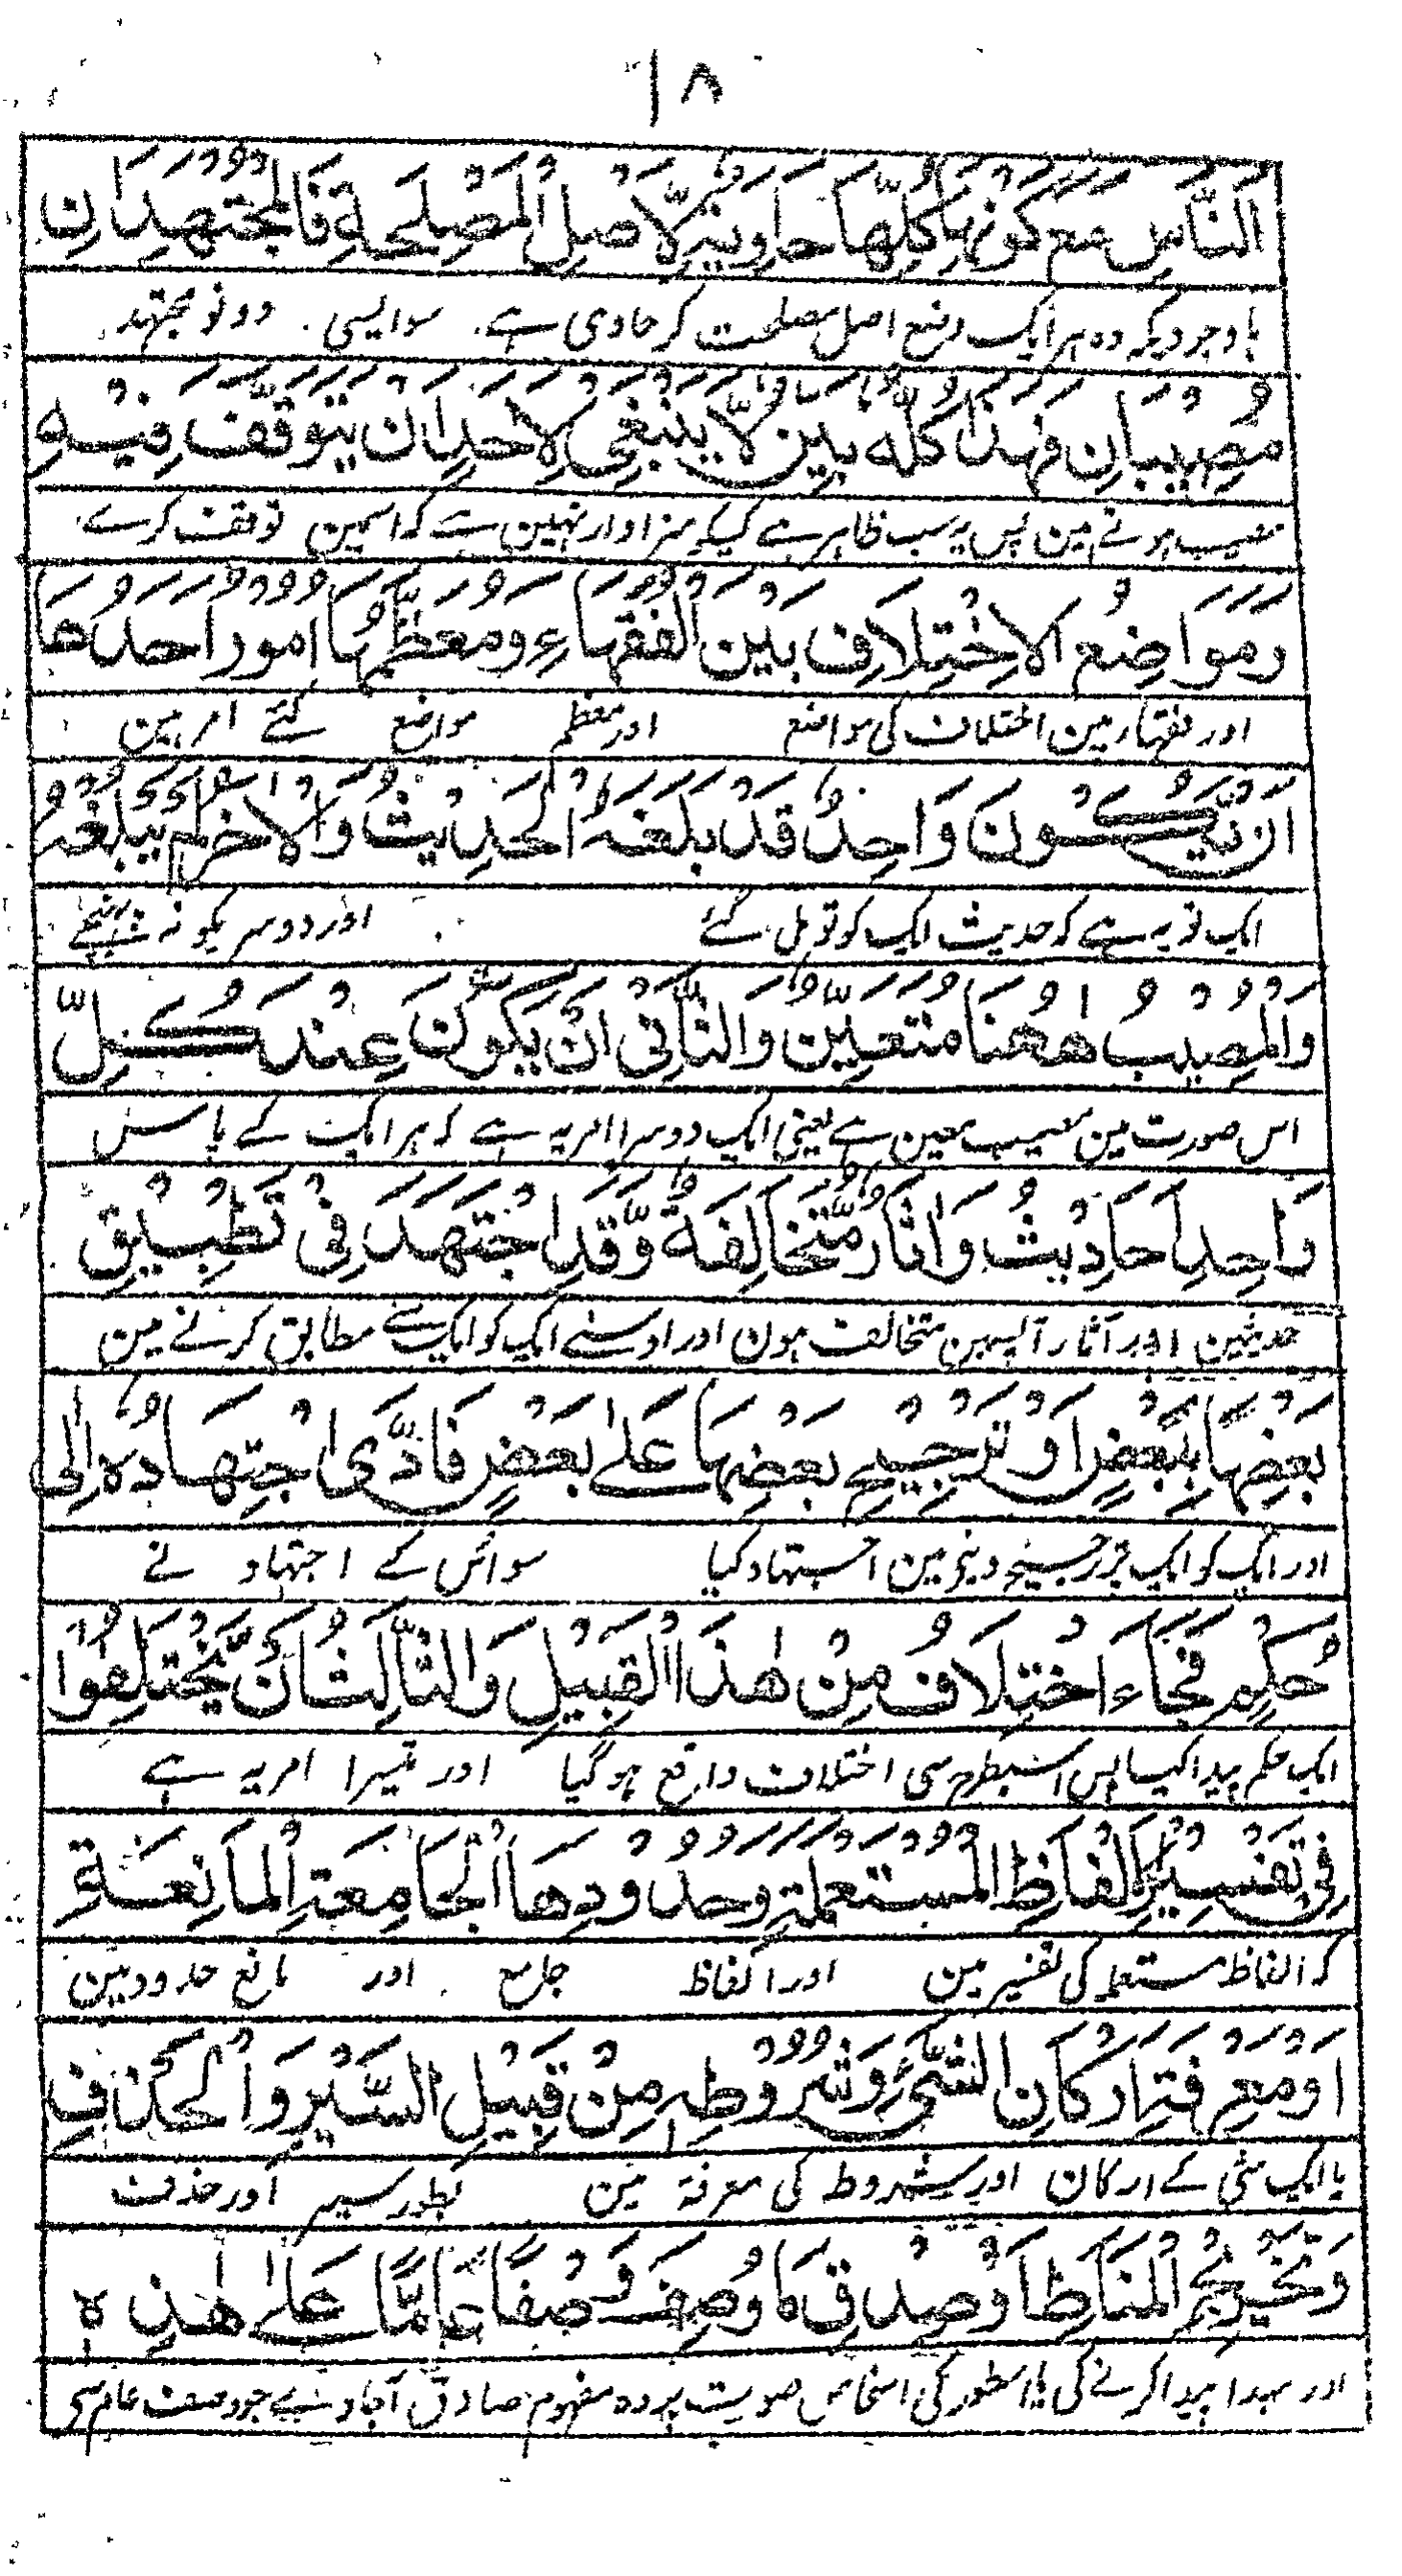 ١٨
النَّاسِ مَعَ كَوْنِهَا كُلِّهَا حَاوِيَةً لِّاَصْلِ الْمَصْلَحَةِ فَالْمُجْتَهِدَانِ
باوجودیکہ وہ ہر ایک وضع اصل مصلحت کر حاوی ہے سو ایسی دونو مجتہد
مُصِيْبَانِ فَهٰذَا كُلُّهٗ بَيِّنٌ لَّا يَنْبَغِيْ لِاَحَدٍ اَنْ يَّتَوَقَّفَ فِيْهِ
مصیب ہوتے ہین پس یہ سب ظاہر ہے کیکو سزاوار نہین ہے کہ اسمین توقف کرے
وَمَوَاضِعُ الْاِخْتِلَافِ بَيْنَ الْفُقَهَاءِ وَمُعَظَّمُهَا اُمُوْرٌ اَحَدُهَا
اور فقہا رمین اختلاف کی مواضع اور معظم مواضع کئے امر ہین
اَنْ يَّكُوْنَ وَاحِدٌ قَدْ بَلَغَهُ الْحَدِيْثُ وَالْاٰخَرُ لَمْ يَبْلُغْهُ
ایک تو یہ ہے کہ حدیث ایک کو تو مل گئے اور دوسریکو نہ پہنچے
وَالْمُصِيْبُ هٰهُنَا مُتَعَيِّنٌ وَالثَّانِيْ اَنْ يَّكُوْنَ عِنْدَ كُلِّ
اس صورت مین مصیب معین ہے یعنی ایک دوسرا امر یہ ہے کہ ہر ایک کے پاس
وَاحِدٍ اَحَادِيْثُ وَاٰثَارٌ مُّتَخَالِفَةٌ وَّقَدِ اجْتَهَدَ فِيْ تَطْبِيْقِ
حدیثین اور آثار آپسمین متخالف ہون اور اوسنے ایک کو ایک سے مطابق کرنے مین
بَعْضِهَا بِبَعْضٍ اَوْ تَرْجِيْحِ بَعْضِهَا عَلٰى بَعْضٍ فَاَدّٰى اجْتِهَادُهٗ اِلٰى
اور ایک کو ایک پر ترجیح دینی مین اجتہاد کیا سو اس کے اجتہاد نے
حُكْمٍ فَجَاءَ اخْتِلَافٌ مِنْ هٰذَا الْقَبِيْلِ وَالثَّالِثُ اَنْ يَّخْتَلِفُوْا
ایک حکم پیدا کیا پس اسطرحسی اختلاف واقع ہو گیا اور تیسرا امر یہ ہے
فِيْ تَفْسِيْرِ الْاَلْفَاظِ الْمُسْتَعْمَلَةِ وَحُدُوْدِهَا الْجَامِعَةِ الْمَانِعَةِ
کہ الفاظ مستعملہ کی تفسیر مین اور الفاظ جامع اور مانع حدود مین
اَوْ مَعْرِفَةِ اَرْكَانِ الشَّيْءِ وَشُرُوْطِهٖ مِنْ قَبِيْلِ السَّبْرِ وَالْحَذْفِ
یا ایک شی کے ارکان اور شروط کی معرفۃ مین بطور سبر اور حذف
وَتَخْرِيْجِ الْمَنَاطِ اَوْ صِدْقِ مَا وُصِفَ وَصْفًا عَامًّا عَلٰى هٰذِهٖ
اور پیدا کرنے کی یا اسطور کی صورت پر وہ مفہوم صادق آجاوے جو وصف عام سی